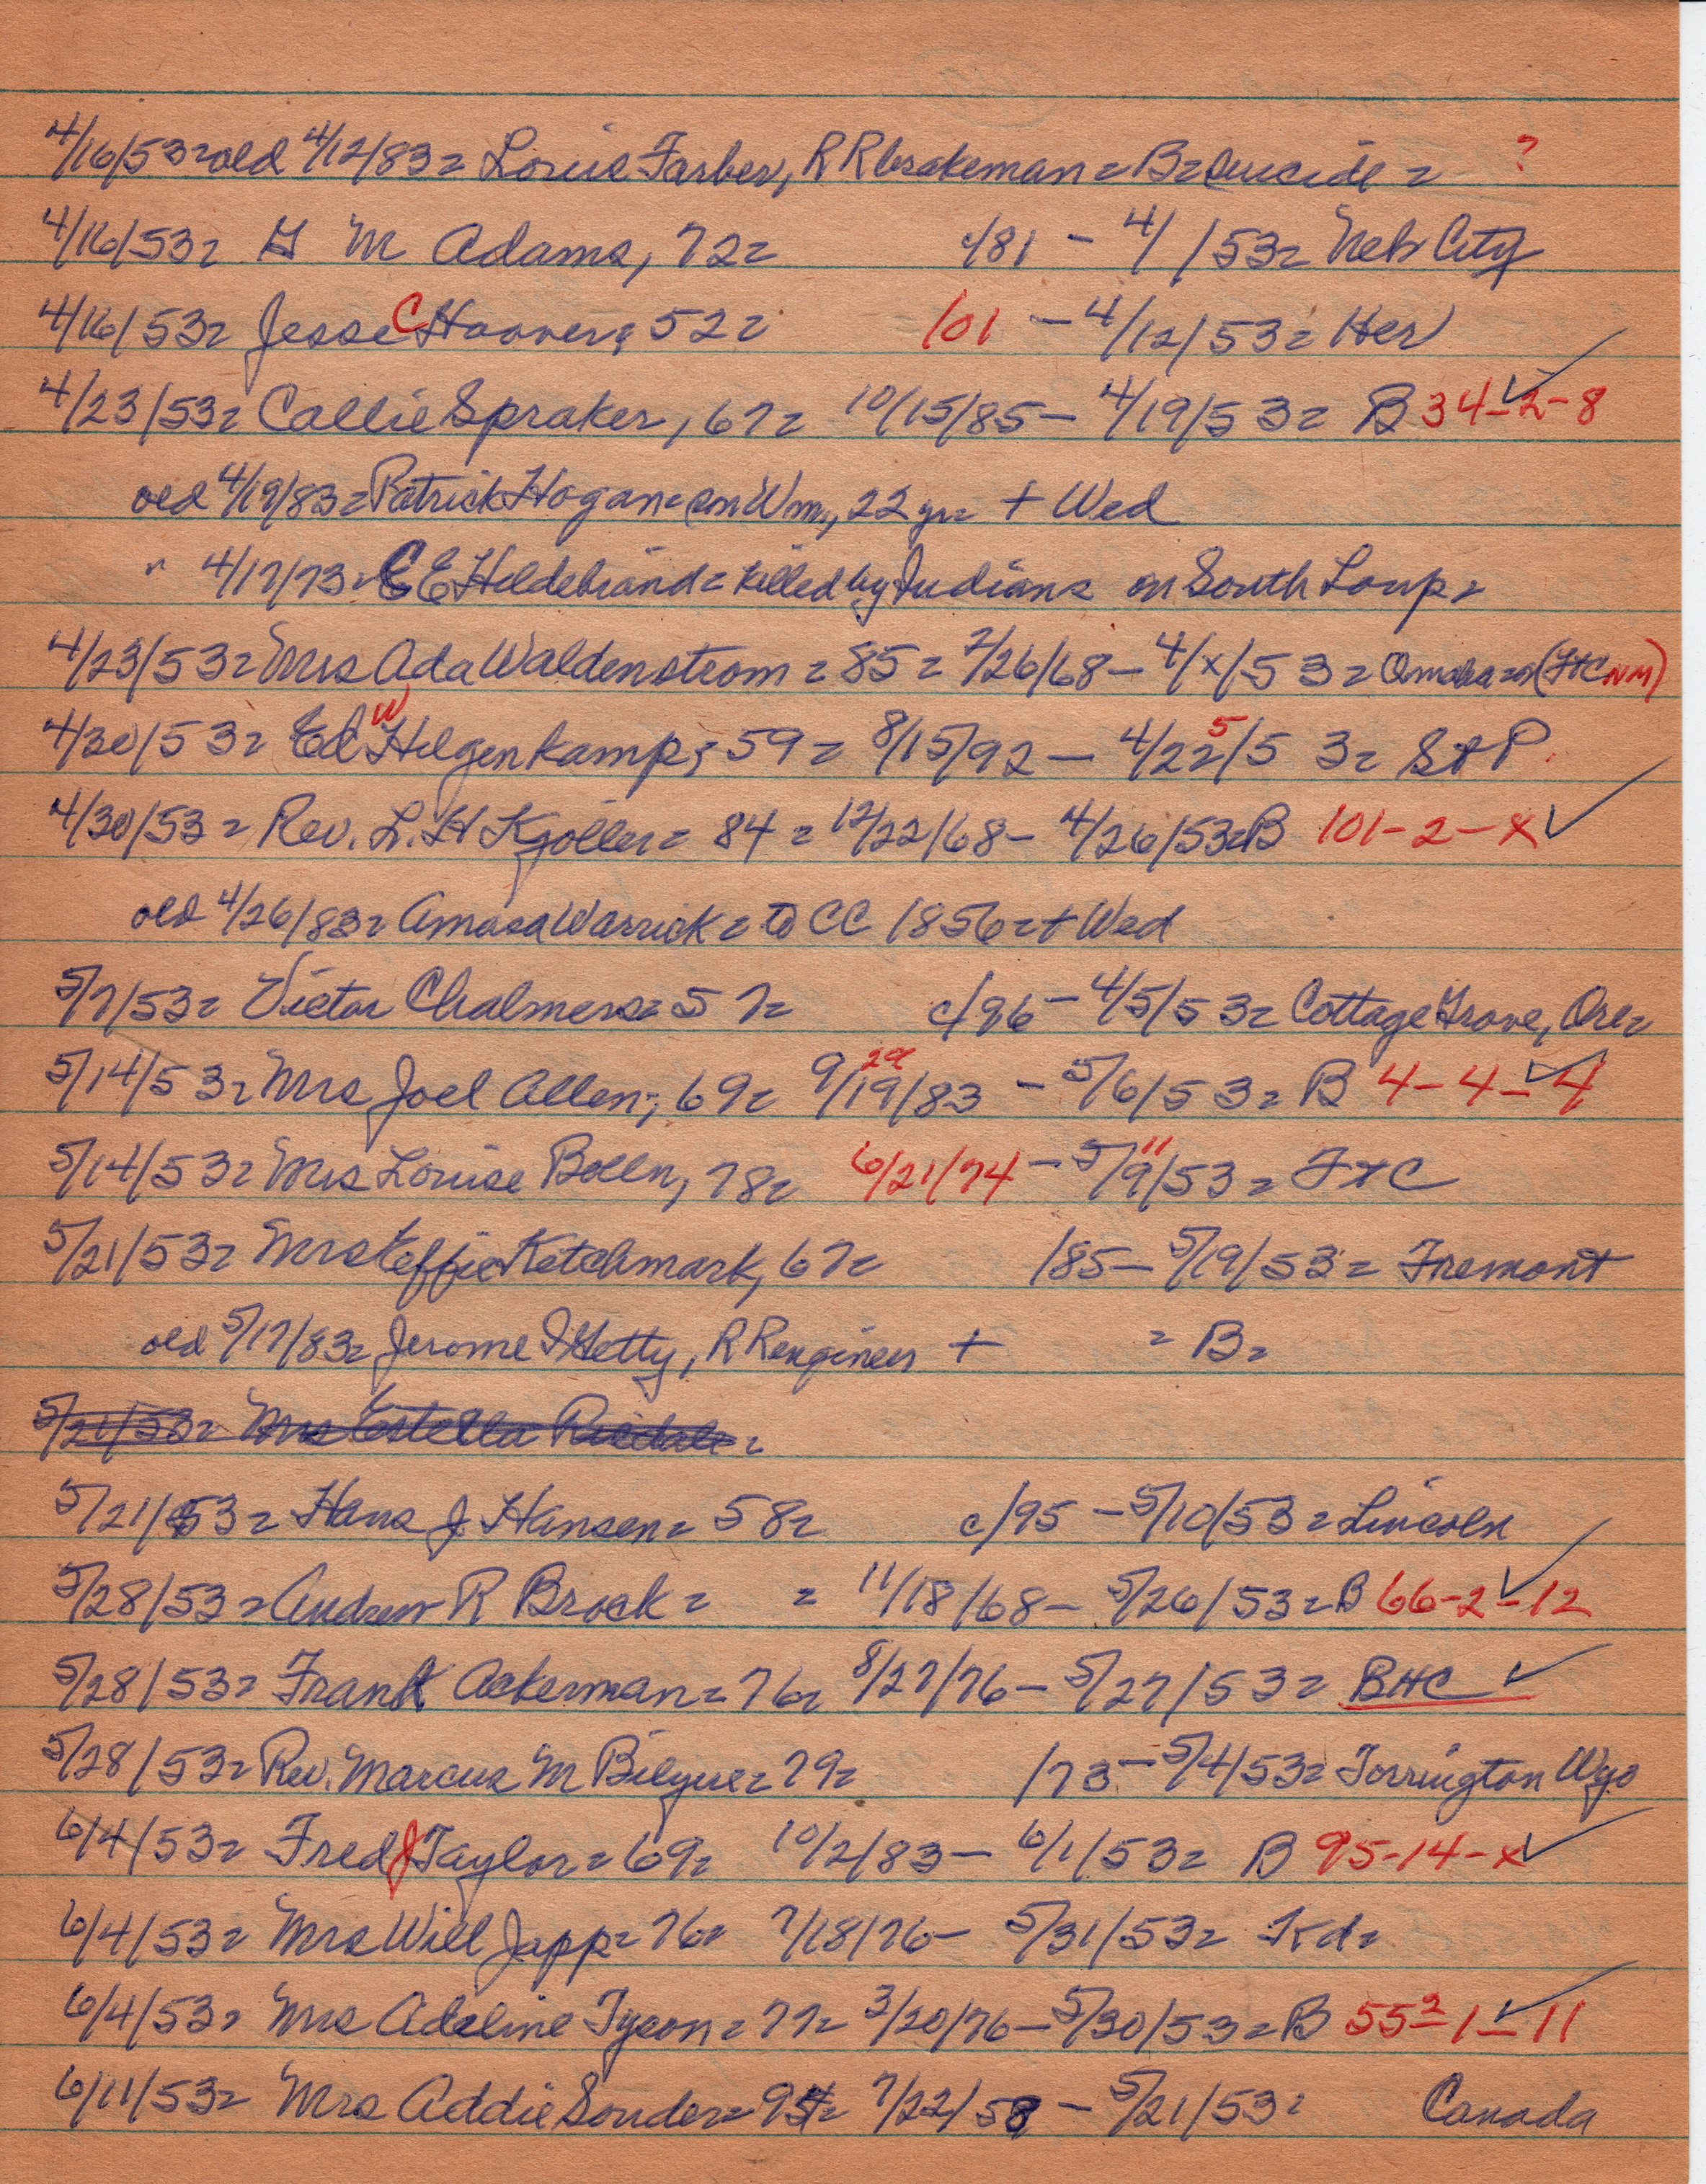 4/16/53= old 4/12/83= Louie Farber, RR brakeman = B= suicide = ?
4/16/53= G M Adams, 72= c/81 - 4/ /53= Neb City
4/16/53= Jesse C Hoover, 52= /01 - 4/12/53= Her
4/23/53= Callie Spraker, 67= 10/15/85- 4/19/53= B 34-2-8 ✓
old 4/19/83= Patrick Hogan= son Wm, 22 yr= + Wed
" 4/17/73= C E Hildebrand= killed by Indians on South Loup=
4/23/53= Mrs Ada Waldenstrom = 85= 2/26/68- 4/x/53= Omaha= (FtC NM)
4/30/53= Ed W Hilgenkamp, 59= 8/15/92 - 4/22 5/53= St P.
4/30/53= Rev. L. H Kjoller= 84= 12/22/68- 4/26/53=B 101-2-x ✓
old 4/26/83= Amasa Warrick= to CC 1856=+ Wed
5/7/53= Victor Chalmers= 57= c/96 - 4/5/53= Cottage Grove, Ore=
5/14/53= Mrs Joel Allen, 69= 9/19 29/83 - 5/6/53= B 4-4-4 ✓
5/14/53= Mrs Louise Bolln, 78= 6/21/74 - 5/9 11/53= FtC
5/21/53= Mrs Effie Ketchmark, 67= /85- 5/19/53= Fremont
old 5/17/83= Jerome I Getty, RR engineer + = B=
5/21/53= Mrs Estella =
5/21/53= Hans J Hansen= 58= c/95 - 5/10/53= Lincoln
5/28/53= Andrew R Brock= = 11/18/68- 5/26/53=B 66-2-12 ✓
5/28/53= Frank Ackerman= 76= 8/27/76- 5/27/53= BHC ✓
5/28/53= Rev. Marcus M Bilyue= 79= /73- 5/4/53= Torrington Wyo
6/4/53= Fred J Taylor= 69= 10/2/83- 6/1/53= B 95-14-x ✓
6/4/53= Mrs Will Japp= 76= 7/18/76- 5/31/53= Kd=
6/4/53= Mrs Adeline Tyson= 77= 3/20/76- 5/30/53=B 55 2-1-11 ✓
6/11/53= Mrs Addie Souder= 94= 7/22/58 - 5/21/53= Canada